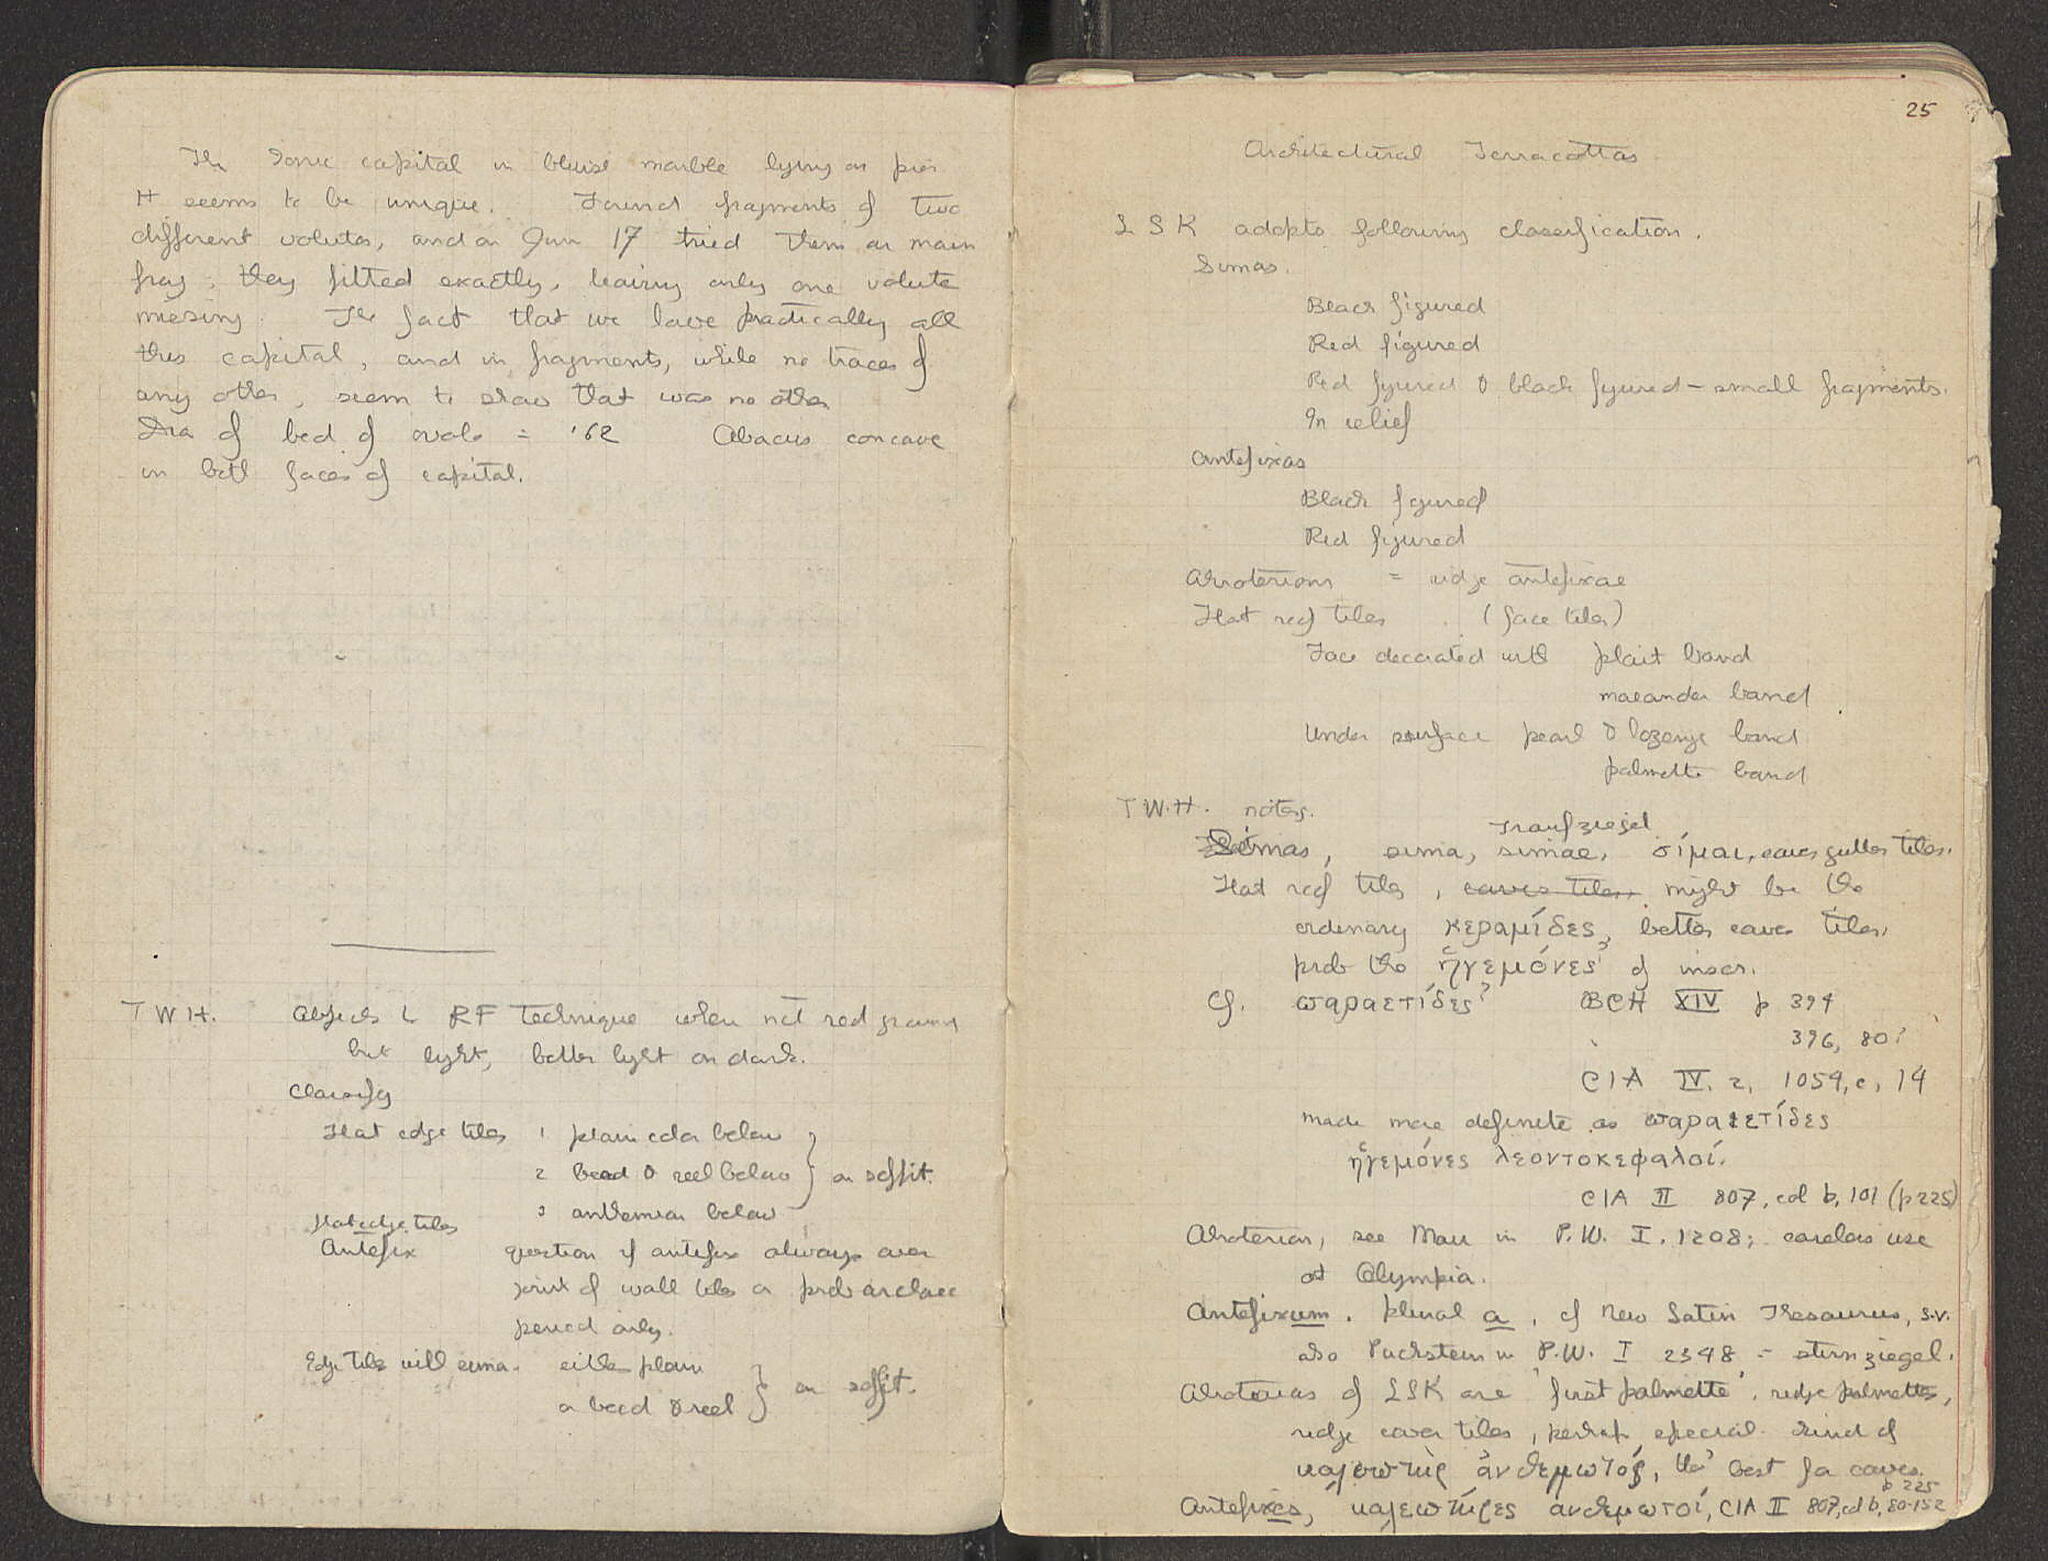 The Ionic capital in bluish marble lying on pier
H seems to be unique. Found fragments of two
different volutes, and on Jun 17 tried them on main
frag; they fitted exactly, leaving only one volute
missing. The fact that we have practically all
this capital, and in fragments, while no traces of
any other, seem to show that was no other
Dia of bed of ovolo = '62 Abacus concave
in both faces of capital.
T W H. Objects to RF technique when not red ground
but light, better light on dark.
Classify
Flat edge tiles 1 plain color below
2 bead & reel below } on soffit.
3 anthemion below
Flat edge tiles
Antefix question if antefix always over
joint of wall tiles or prob archaic
period only.
Edge tiles with sima. either plain
or bead & reel } on soffit.
25
Architectural Terracottas
L S K adopts following classification.
Simas.
Black figured
Red figured
Red figured & black figured - small fragments.
In relief
Antefixas
Black figured
Red figured
Akroterions = ridge antefixae
Flat roof tiles (face tiles)
Face decorated with plait band
maeander band
Under surface pearl & lozenge band
palmette band
T W. H. notes.
Traufziegel
Simas, sima, simae, σίμαι, eaves gutter tiles.
Flat roof tiles, eaves tiles, might be the
ordinary κεραμίδες, better eaves tiles,
prob the ἡγεμόνες? of inscr.
Cf. παραετίδες? BCH XIV p 394
396, 80?
CIA IV. 2, 1054, c, 14
made more definite as παραιετίδες
ἡγεμόνες λεοντοκεφαλοί.
CIA II 807, col b, 101 (p 225)
Akroterion, see Mau in P.W. I. 1208; careless use
at Olympia.
Antefixum. plural a, cf New Latin Thesaurus, s.v.
also Puchstein in P.W. I 2348 = stirnziegel.
Akroterias of LSK are 'first palmette', ridge palmettes,
ridge cover tiles, perhaps special kind of
καλυπτὴρ ἀνθεμωτός, tho' best for eaves.
p 225
Antefixes, καλυπτῆρες ἀνθεμωτοί, CIA II 807, col b, 80-152